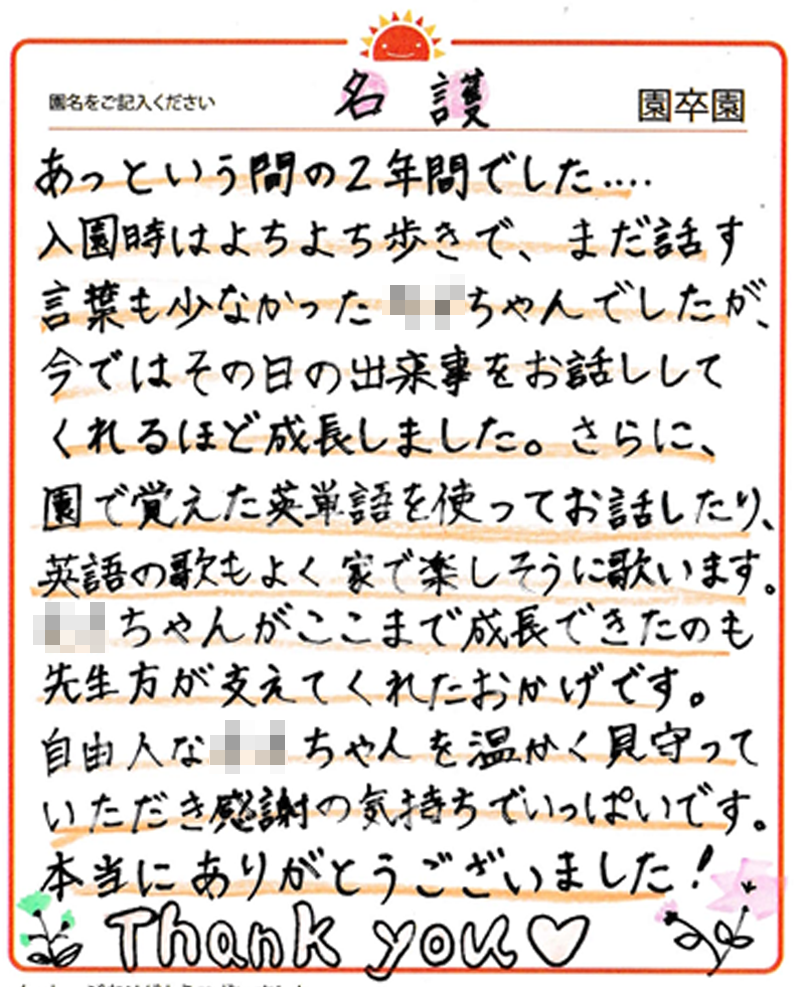 園名をご記入ください 名護 園卒園
あっという間の2年間でした....
入園時はよちよち歩きで、まだ話す
言葉も少なかった ちゃんでしたが、
今ではその日の出来事をお話ししして
くれるほど成長しました。さらに、
園で覚えた英単語を使ってお話したり、
英語の歌もよく家で楽しそうに歌います。
ちゃんがここまで成長できたのも
先生方が支えてくれたおかげです。
自由人な ちゃんを温かく見守って
いただき感謝の気持ちでいっぱいです。
本当にありがとうございました!
Thank you♡